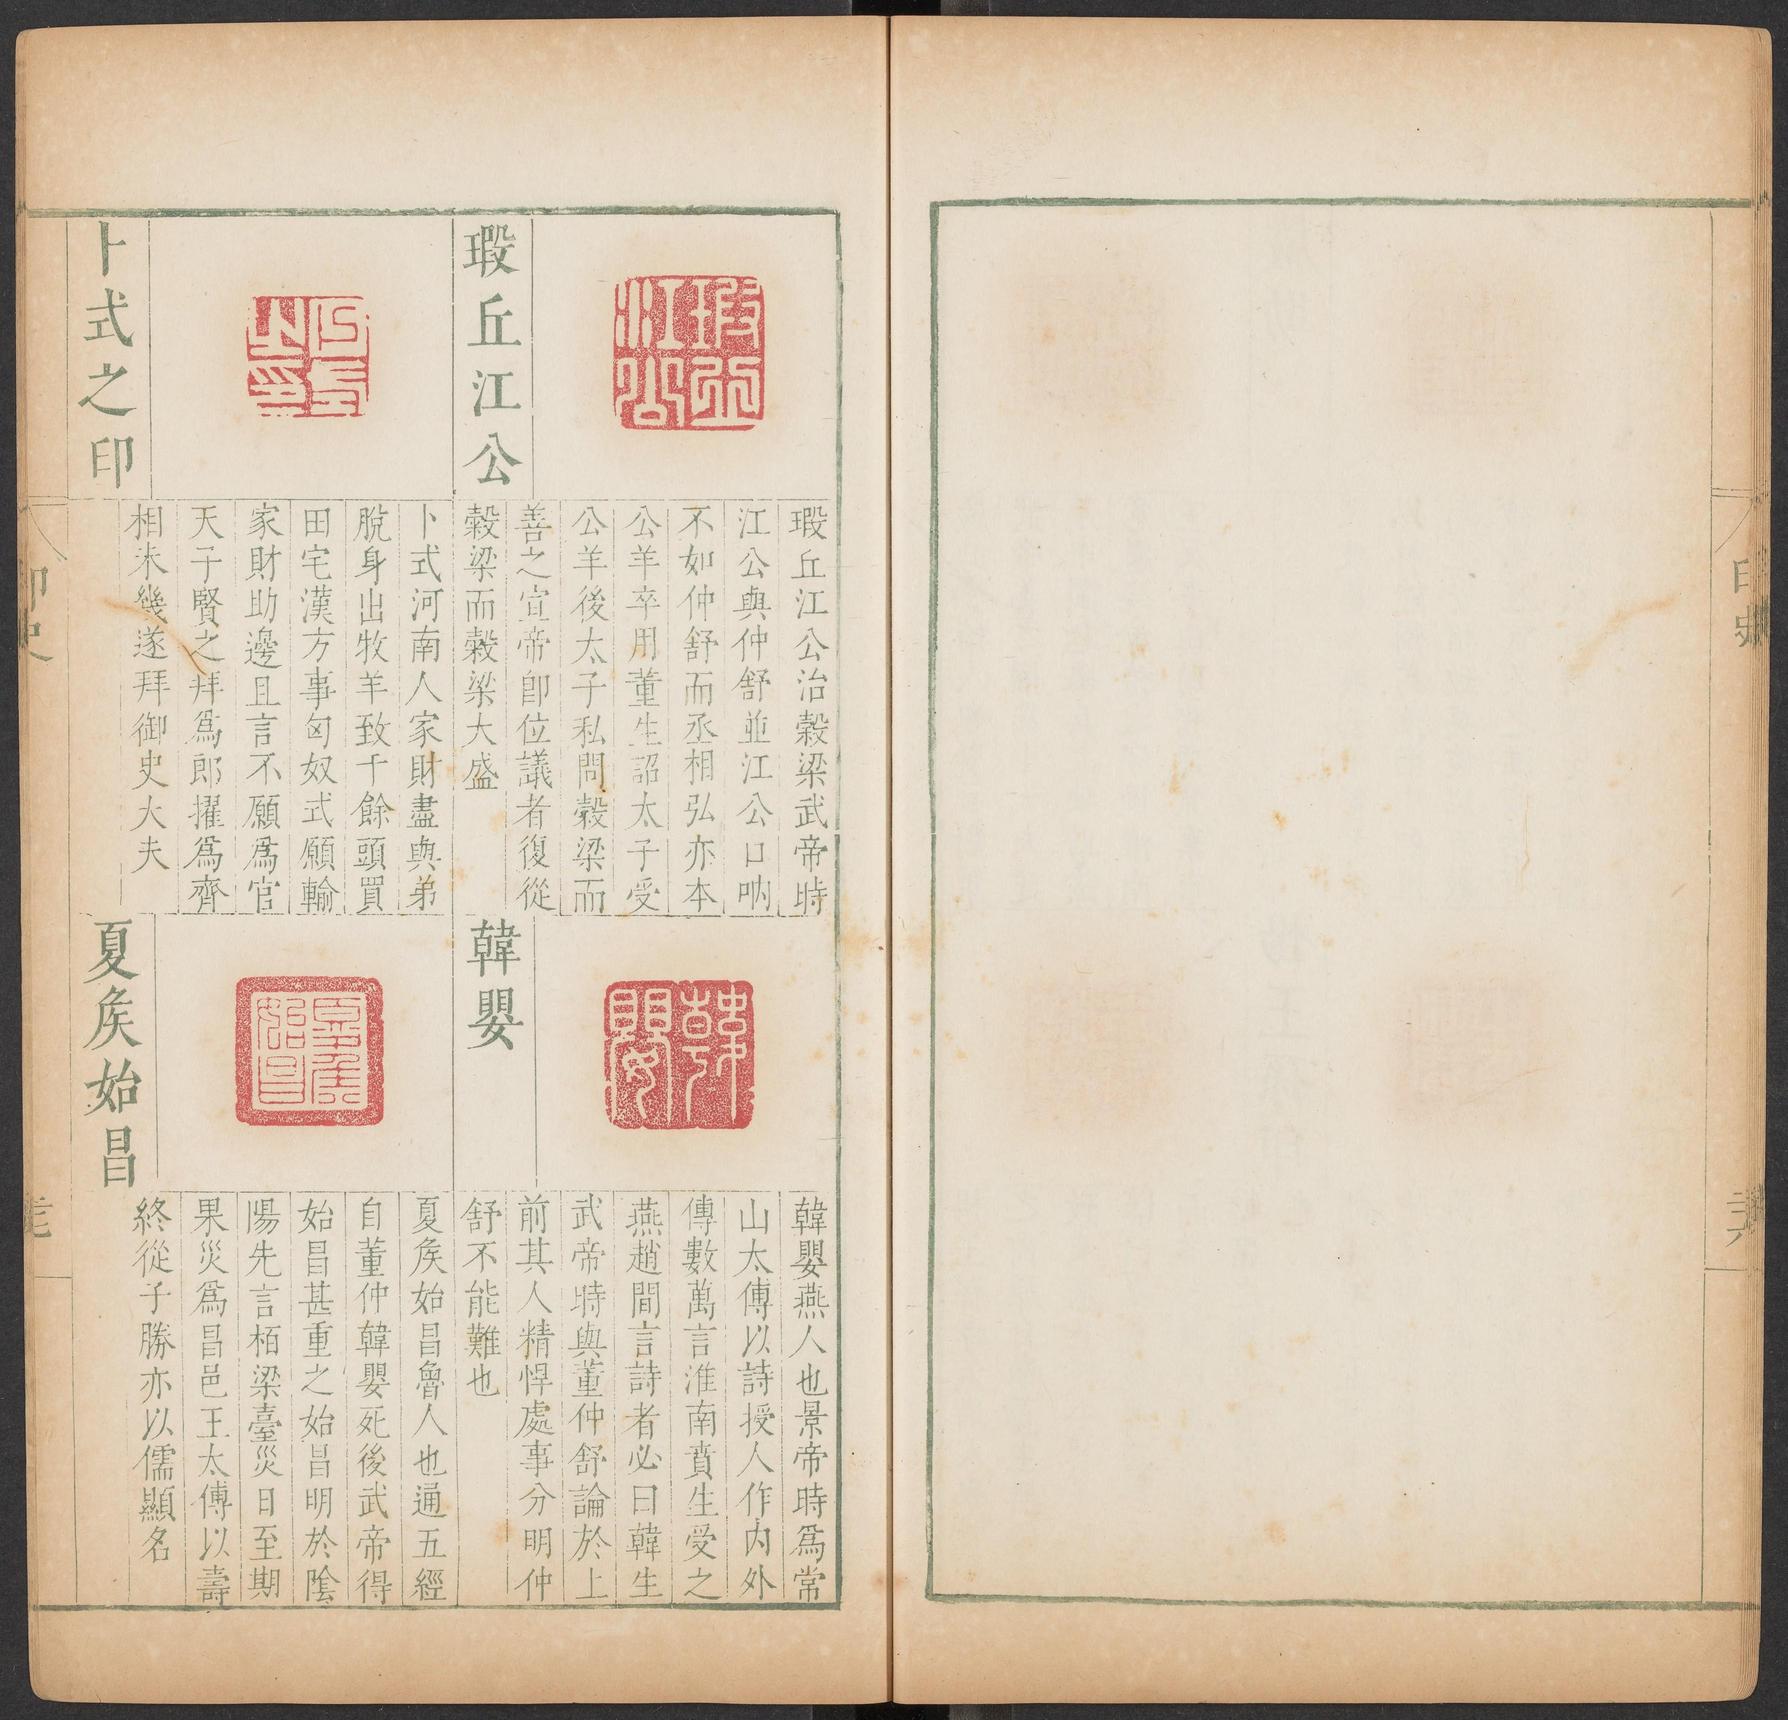 印史
瑕丘江公
瑕丘江公
瑕丘江公治穀梁武帝時
江公與仲舒並江公口吶
不如仲舒而丞相弘亦本
公羊卒用董生詔太子受
公羊後太子私問穀梁而
善之宣帝卽位議者復從
穀梁而穀梁大盛
卜式之印
卜式河南人家財盡與弟
脫身出牧羊致千餘頭買
田宅漢方事匈奴式願輸
家財助邊且言不願爲官
天子賢之拜爲郎擢爲齊
相未幾遂拜御史大夫
韓嬰
韓嬰
韓嬰燕人也景帝時爲常
山太傅以詩授人作內外
傳數萬言淮南賁生受之
燕趙間言詩者必曰韓生
武帝時與董仲舒論於上
前其人精悍處事分明仲
舒不能難也
夏侯始昌
夏矦始昌
夏矦始昌魯人也通五經
自董仲韓嬰死後武帝得
始昌甚重之始昌明於陰
陽先言栢梁臺災日至期
果災爲昌邑王太傅以壽
終從子勝亦以儒顯名
印史